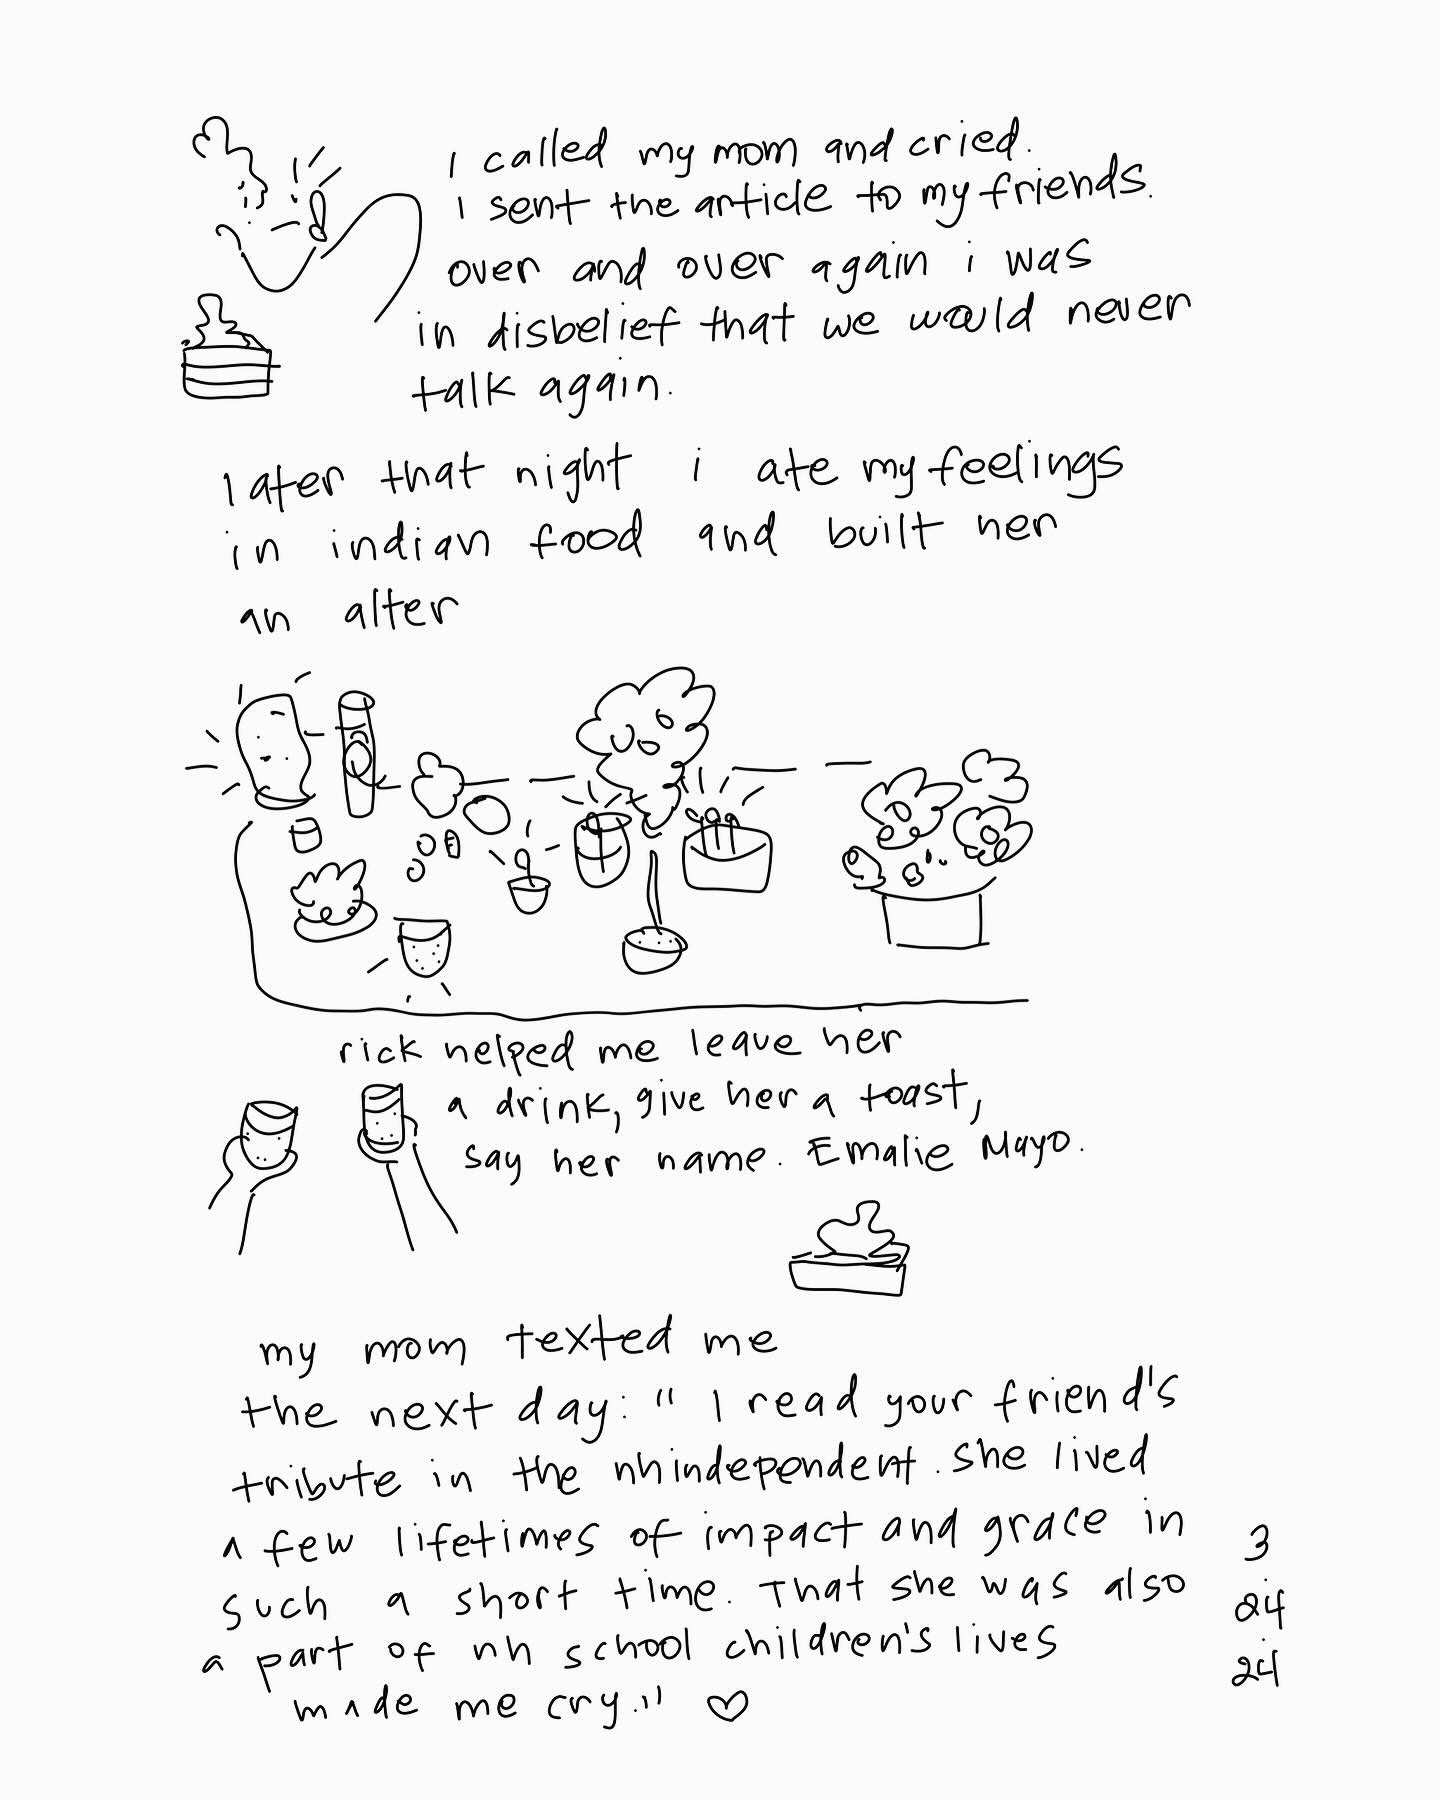 i called my mom and cried.
i sent the article to my friends.
over and over again i was
in disbelief that we would never
talk again.
later that night i ate my feelings
in indian food and built her
an alter
rick helped me leave her
a drink, give her a toast,
say her name. Emalie Mayo.
my mom texted me
the next day: "I read your friend's
tribute in the nhindependent. she lived
a few lifetimes of impact and grace in
such a short time. That she was also
a part of nh school children's lives
made me cry." ♡
3
.
24
.
24